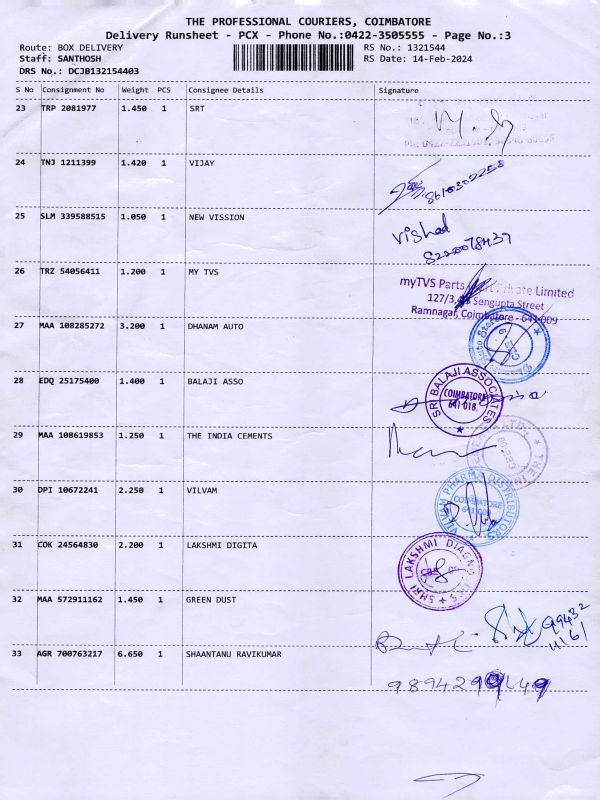 THE PROFESSIONAL COURIERS, COIMBATORE
Delivery Runsheet - PCX - Phone No.:0422-3505555 - Page No.:3
Route: BOX DELIVERY RS No.: 1321544
Staff: SANTHOSH RS Date: 14-Feb-2024
DRS No.: DCJB132154403
S No Consignment No Weight PCS Consignee Details Signature
23 TRP 2081977 1.450 1 SRT
24 TNJ 1211399 1.420 1 VIJAY
25 SLM 339588515 1.050 1 NEW VISSION
Vishal
26 TRZ 54056411 1.200 1 MY TVS
myTVS Parts Private Limited
127/3, Sengupta Street
Ramnagar, Coimbatore - 641 009
27 MAA 108285272 3.200 1 DHANAM AUTO
28 EDQ 25175400 1.400 1 BALAJI ASSO
SRI BALAJI ASSOCIATES
COIMBATORE
641 018
29 MAA 108619853 1.250 1 THE INDIA CEMENTS
30 DPI 10672241 2.250 1 VILVAM
VILVAM PHARMA DISTRIBUTORS
COIMBATORE
31 COK 24564830 2.200 1 LAKSHMI DIGITA
SHRI LAKSHMI
32 MAA 572911162 1.450 1 GREEN DUST
99432
11161
33 AGR 700763217 6.650 1 SHAANTANU RAVIKUMAR